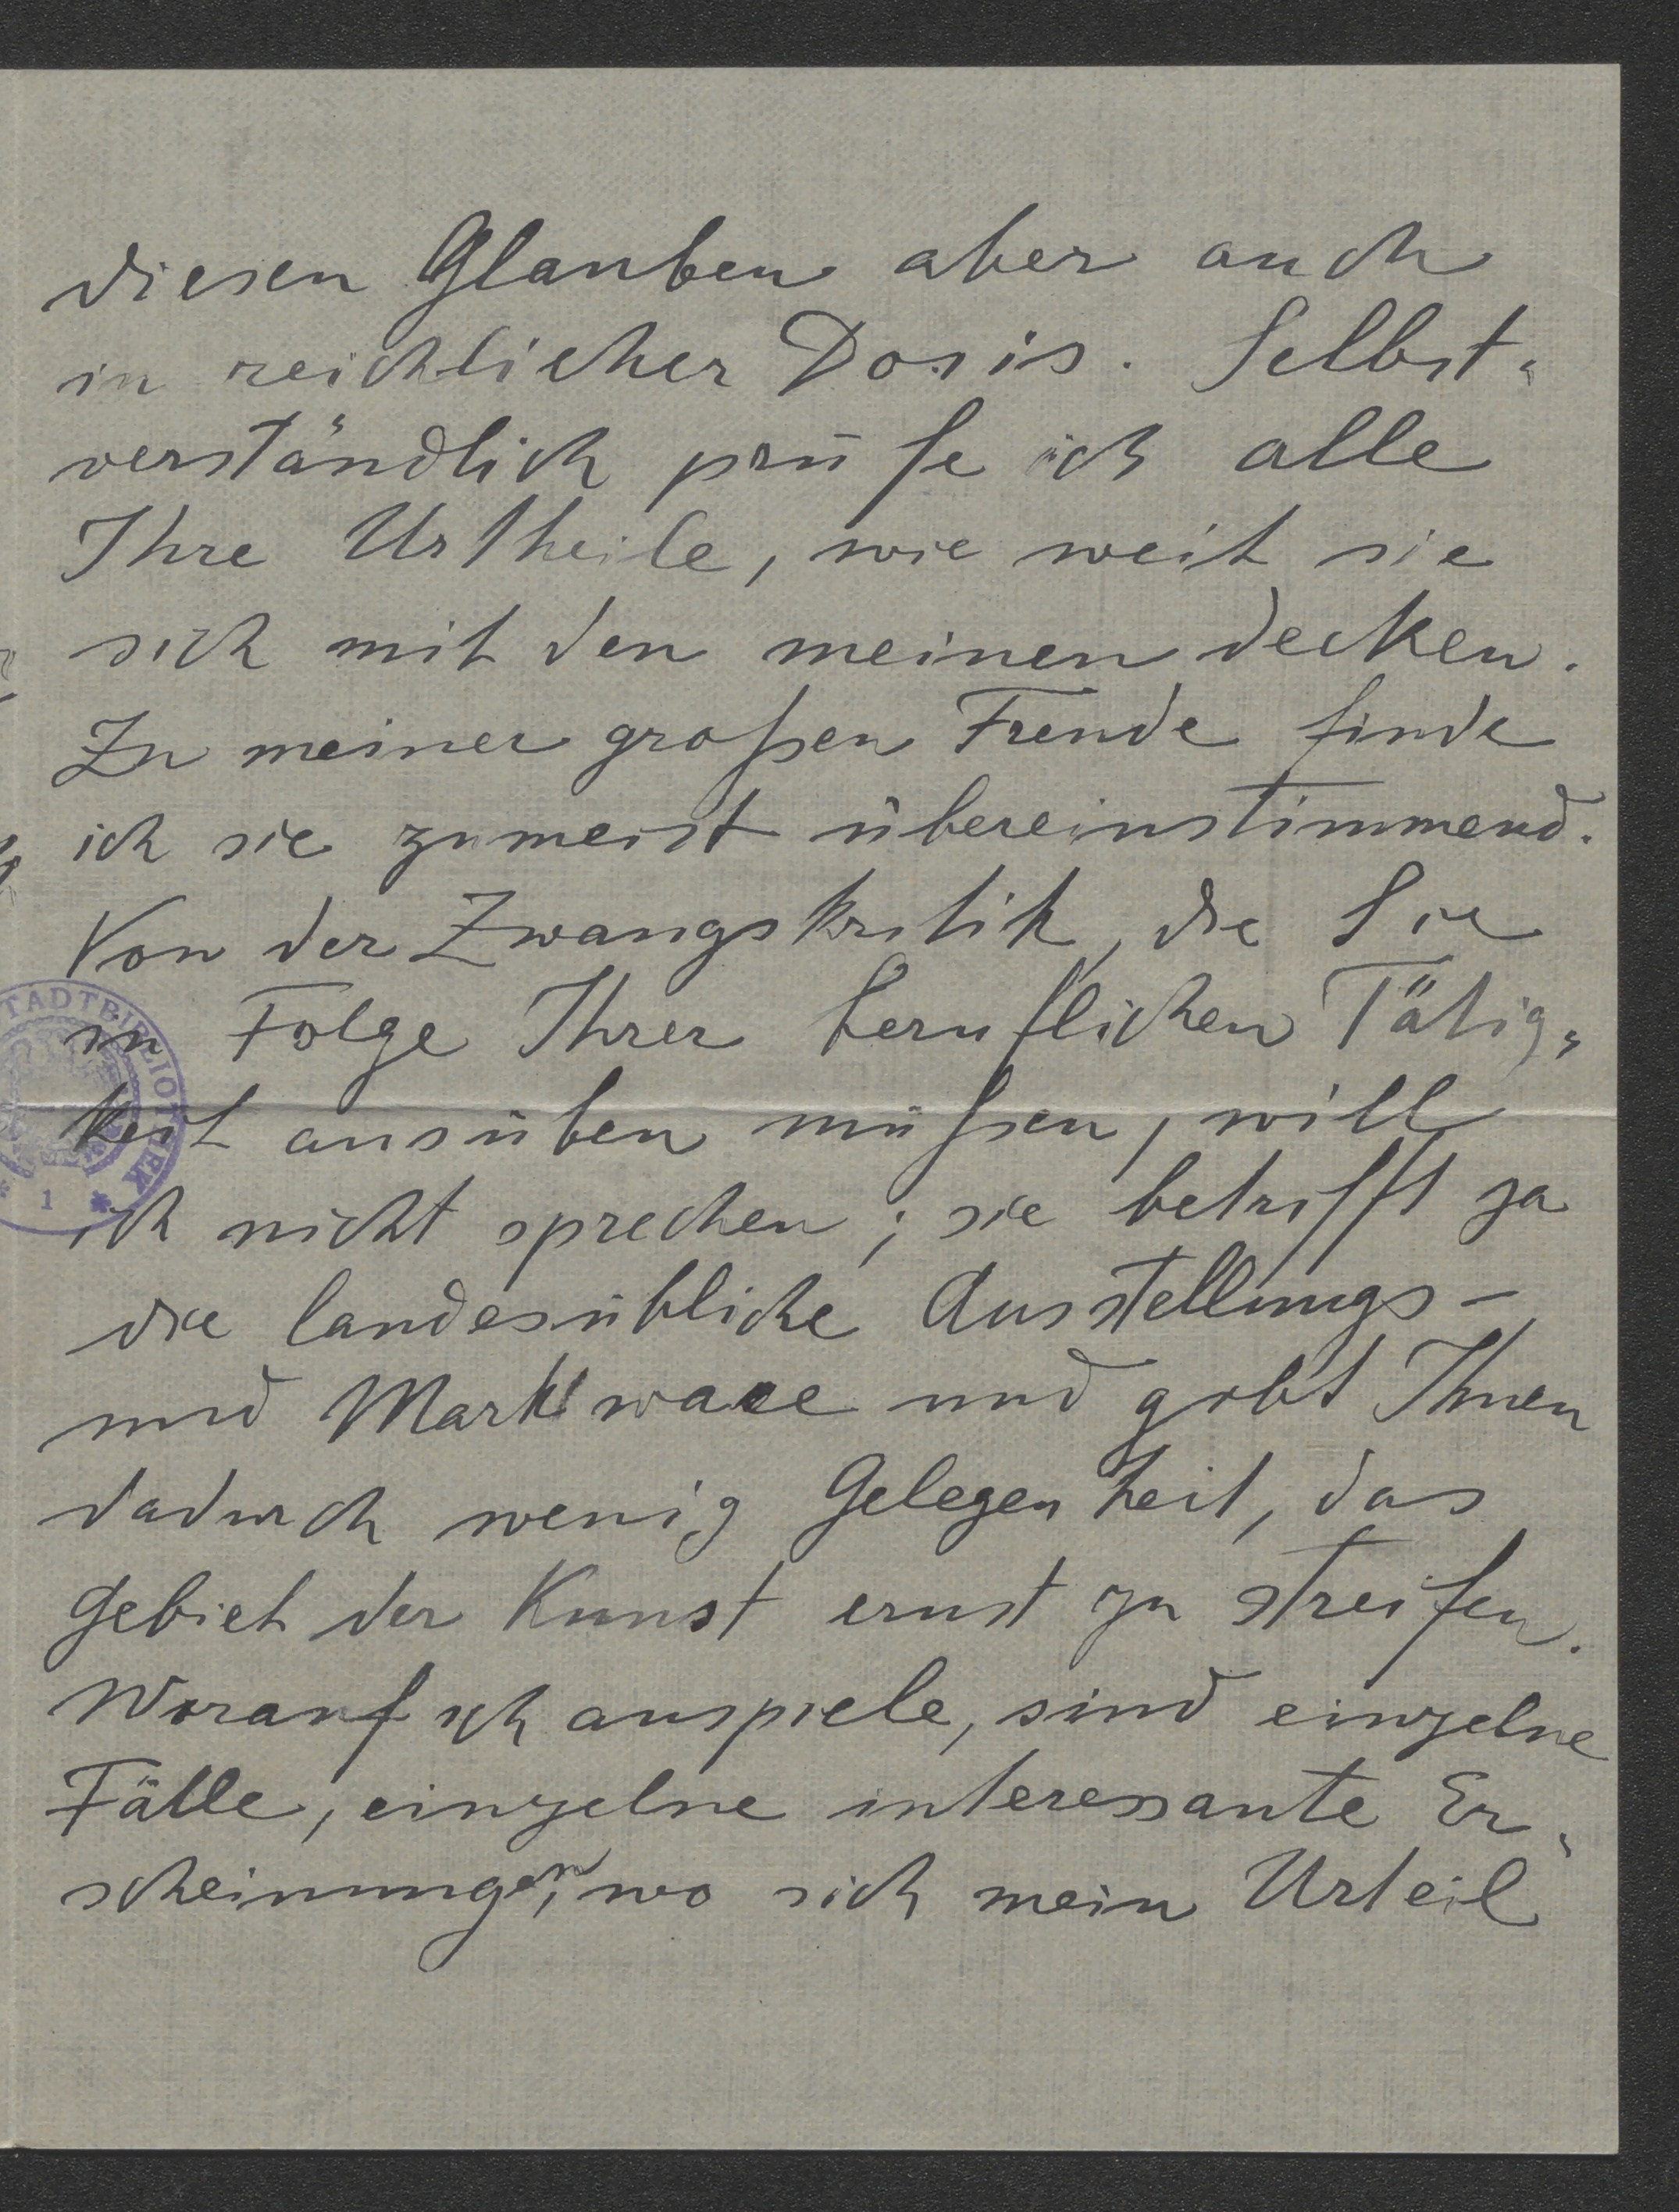 diesen Glauben aber auch
in reichlicher Dosis. Selbst-
verständlich prüfe ich alle
Ihre Urtheile, wie weit sie
sich mit den meinen decken.
Zu meiner großen Freude finde
ich sie zumeist übereinstimmend.
Von der Zwangskritik, die Sie
in Folge Ihrer beruflichen Tätig-
keit ausüben müßen, will
ich nicht sprechen; sie betrifft ja
die landesübliche Ausstellungs-
und Marktware und gibt Ihnen
dadurch wenig Gelegenheit, das
Gebiet der Kunst ernst zu streifen.
Worauf ich anspiele, sind einzelne
Fälle, einzelne interessante Er-
scheinungen, wo sich mein Urteil
STADTBIBLIOTHEK
* 1 *